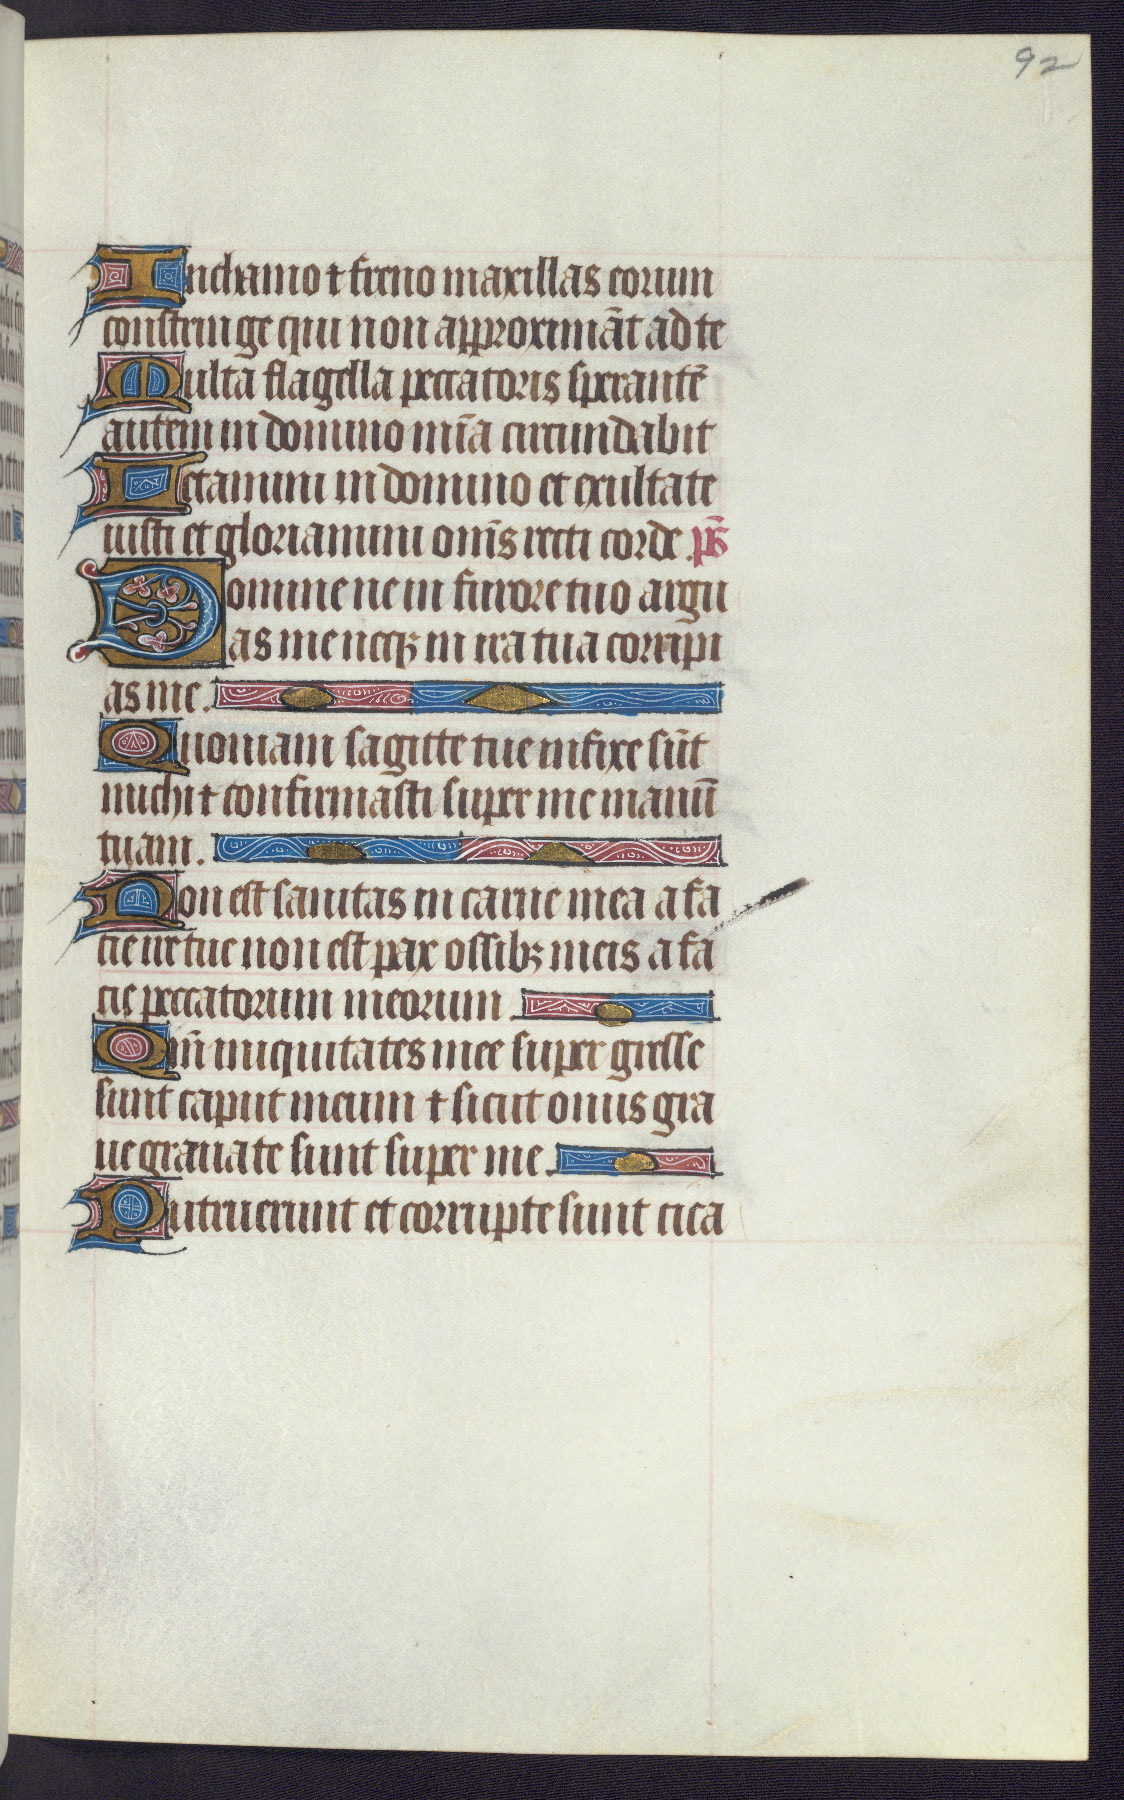 92
Inchamo ⁊ freno maxillas eorum
constringe qui non approximāt ad te
Multa flagella peccatoris sperantē
autem in domino mīa circundabit
Letamini in domino et exultate
iusti et gloriamini om̄s recti corde. p̄s
Domine ne in furore tuo argu
as me neqꝫ in ira tua corripi
as me.
Quoniam sagitte tue infixe sūt
michi ⁊ confirmasti super me manū
tuam.
Non est sanitas in carne mea a fa
cie ire tue non est pax ossibꝫ meis a fa
cie peccatorum meorum.
Qm̄ iniquitates mee super gresse
sunt caput meum ⁊ sicut onus gra
ue grauate sunt super me.
Putruerunt et corrupte sunt cica